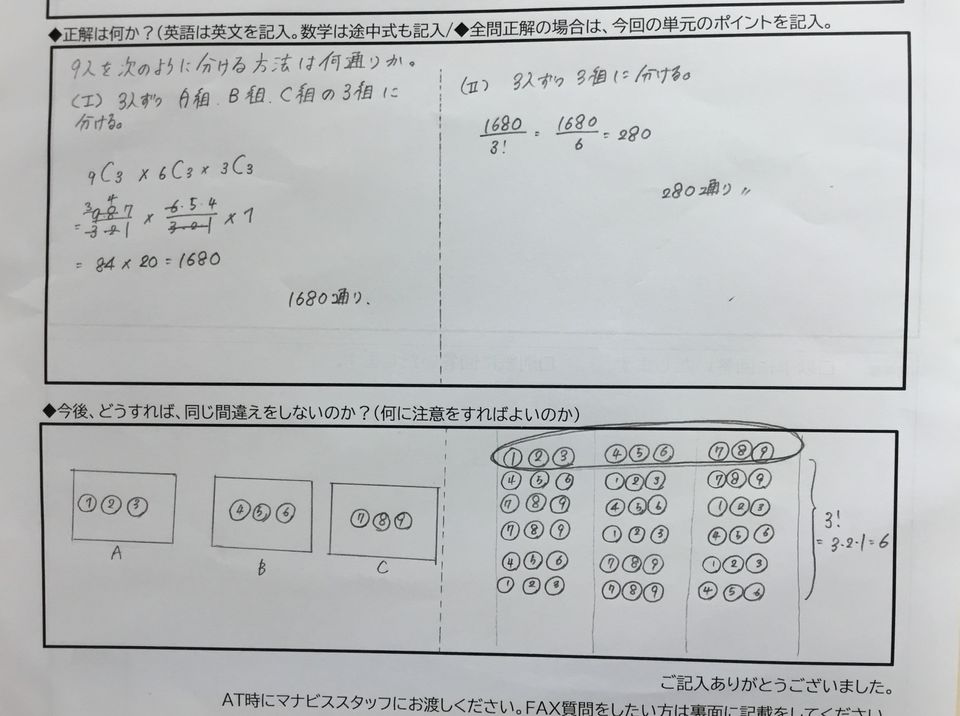 ◆正解は何か？(英語は英文を記入。数学は途中式も記入/◆全問正解の場合は、今回の単元のポイントを記入。
9人を次のように分ける方法は何通りか。
(I) 3人ずつ A組、B組、C組の3組に
分ける。
9C3 × 6C3 × 3C3
= 9・8・7/3・2・1 × 6・5・4/3・2・1 × 1
3 4
= 84 × 20 = 1680
1680通り.
(II) 3人ずつ 3組に分ける。
1680/3! = 1680/6 = 280
280通り〃
◆今後、どうすれば、同じ間違えをしないのか？(何に注意をすればよいのか)
① ② ③
A
④ ⑤ ⑥
B
⑦ ⑧ ⑨
C
① ② ③ ④ ⑤ ⑥ ⑦ ⑧ ⑨
④ ⑤ ⑥ ① ② ③ ⑦ ⑧ ⑨
⑦ ⑧ ⑨ ④ ⑤ ⑥ ① ② ③
⑦ ⑧ ⑨ ① ② ③ ④ ⑤ ⑥
④ ⑤ ⑥ ⑦ ⑧ ⑨ ① ② ③
① ② ③ ⑦ ⑧ ⑨ ④ ⑤ ⑥
3!
= 3・2・1 = 6
ご記入ありがとうございました。
AT時にマナビススタッフにお渡しください。FAX質問をしたい方は裏面に記載をしてください